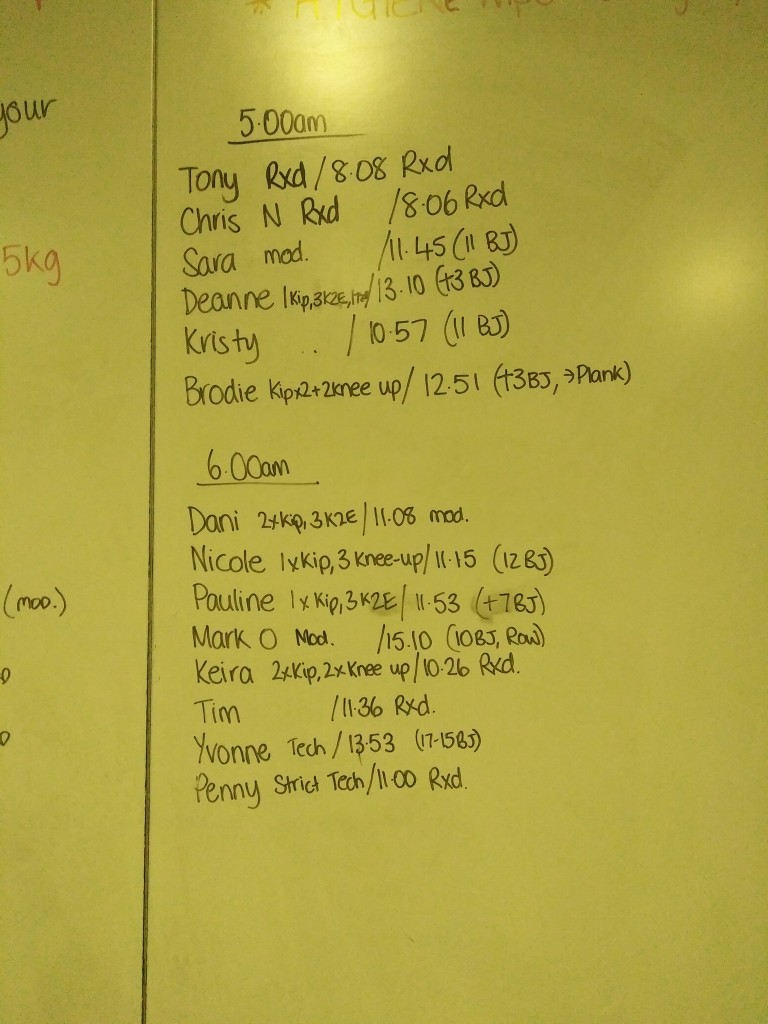 * HYGIENE
your
5kg
(mod.)
5.00am
Tony Rxd / 8.08 Rxd
Chris N Rxd / 8.06 Rxd
Sara mod. / 11.45 (11 BJ)
Deanne 1Kip, 3K2E, / 13.10 (+3 BJ)
Kristy .. / 10.57 (11 BJ)
Brodie Kipx2+2knee up / 12.51 (+3BJ, →Plank)
6.00am
Dani 2xKip, 3K2E / 11.08 mod.
Nicole 1xKip, 3 Knee-up / 11.15 (12 BJ)
Pauline 1xKip, 3K2E / 11.53 (+7BJ)
Mark O Mod. / 15.10 (10BJ, Row)
Keira 2xKip, 2xKnee up / 10.26 Rxd.
Tim / 11.36 Rxd.
Yvonne Tech / 13.53 (17-15BJ)
Penny Strict Tech / 11.00 Rxd.